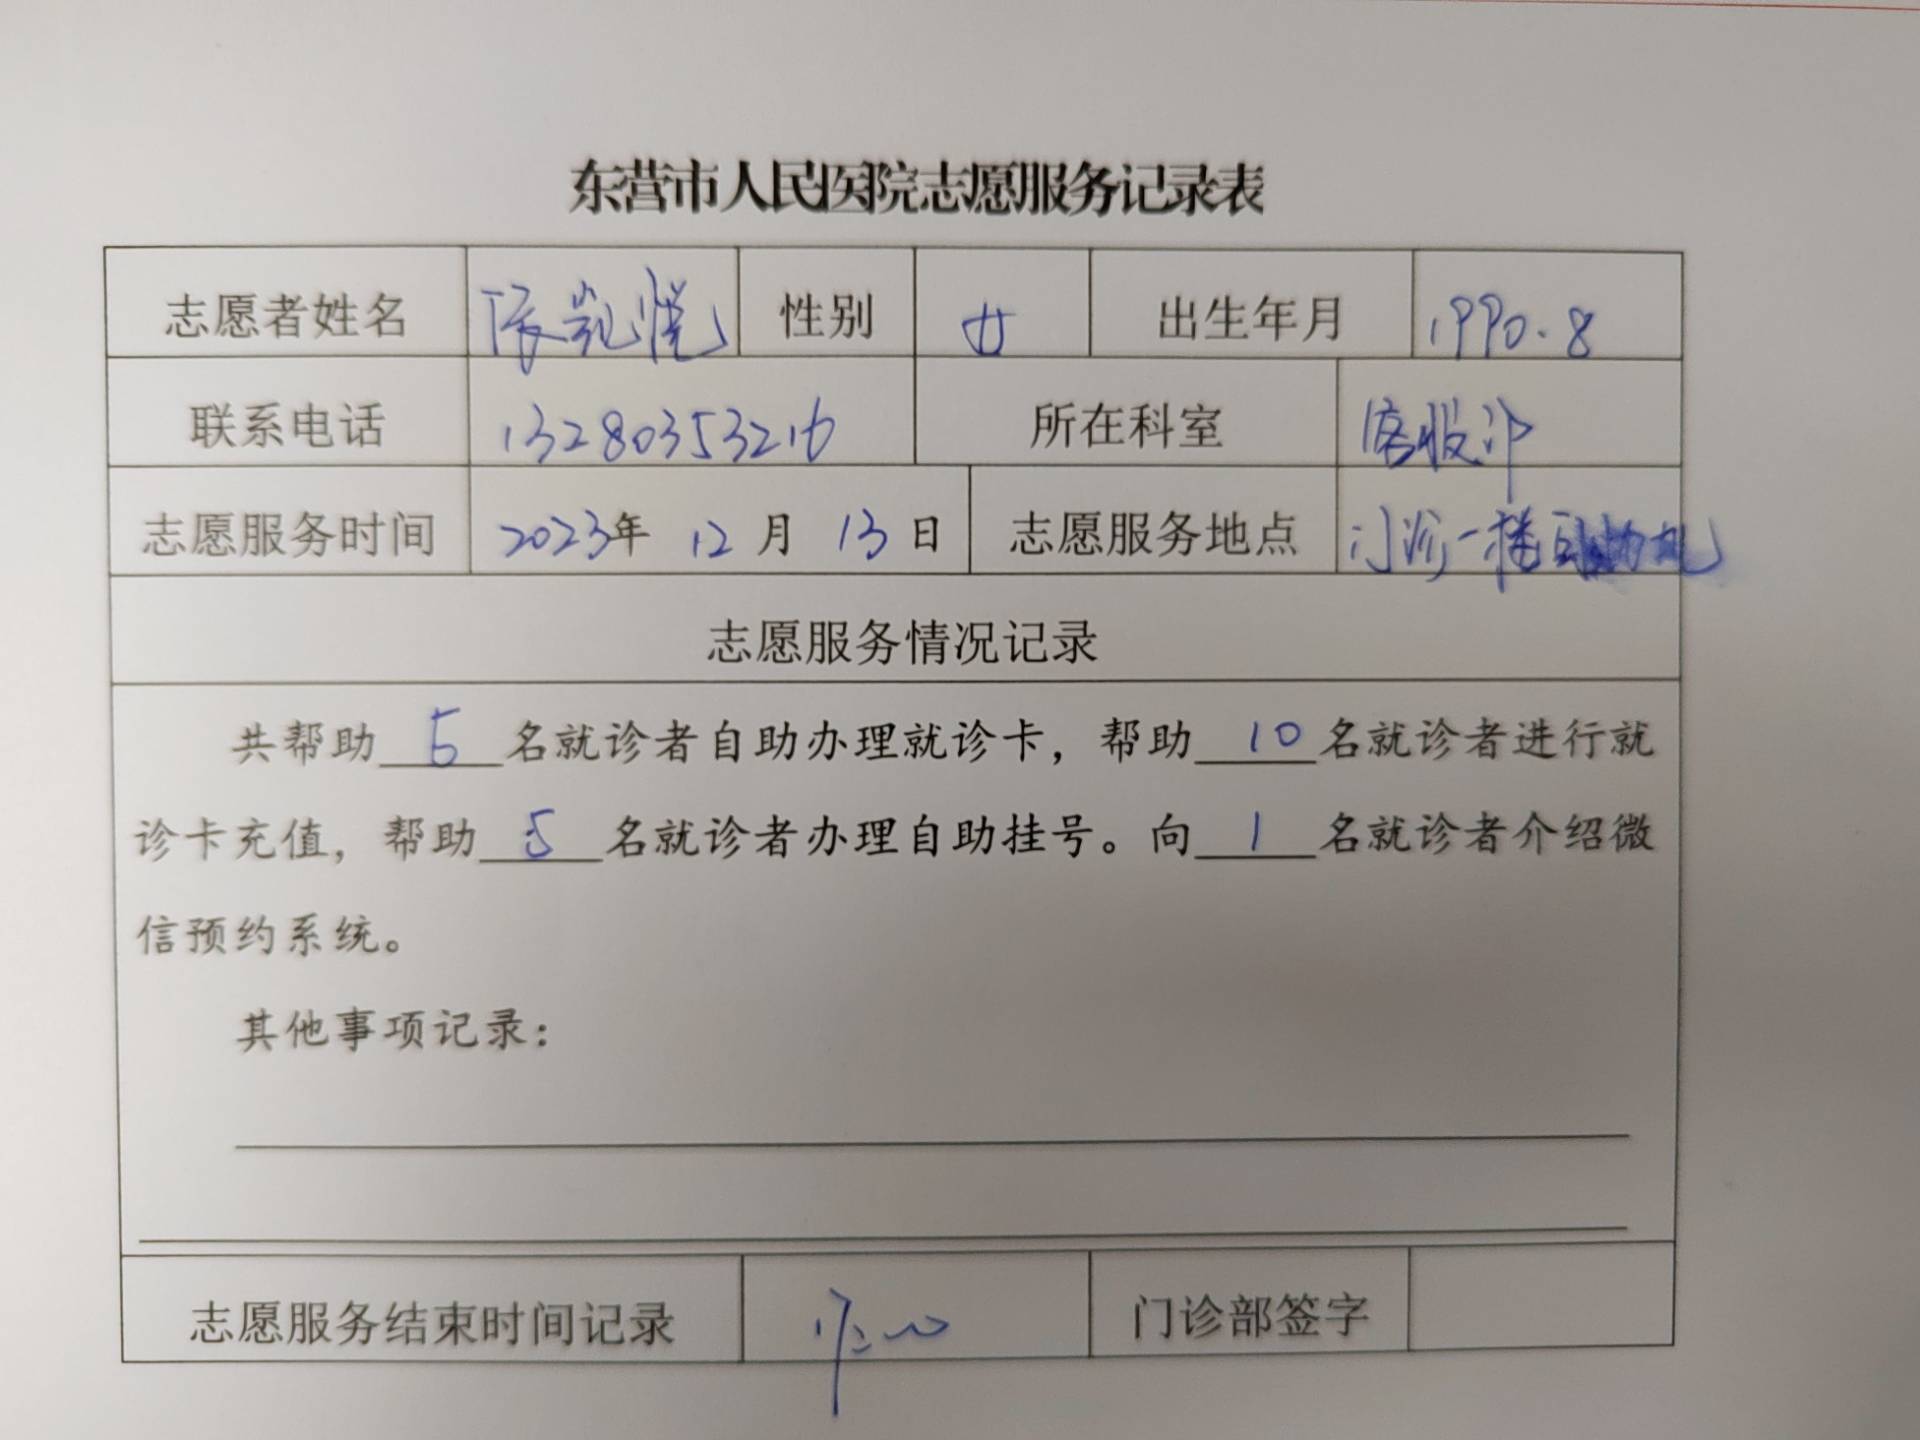 东营市人民医院志愿服务记录表
志愿者姓名 张凯悦 性别 女 出生年月 1990.8
联系电话 13280353216 所在科室
志愿服务时间 2023年 12月 13日 志愿服务地点 门诊一楼自助机
志愿服务情况记录
共帮助 5 名就诊者自助办理就诊卡，帮助 10 名就诊者进行就
诊卡充值，帮助 5 名就诊者办理自助挂号。向 1 名就诊者介绍微
信预约系统。
其他事项记录：
志愿服务结束时间记录 17:00 门诊部签字